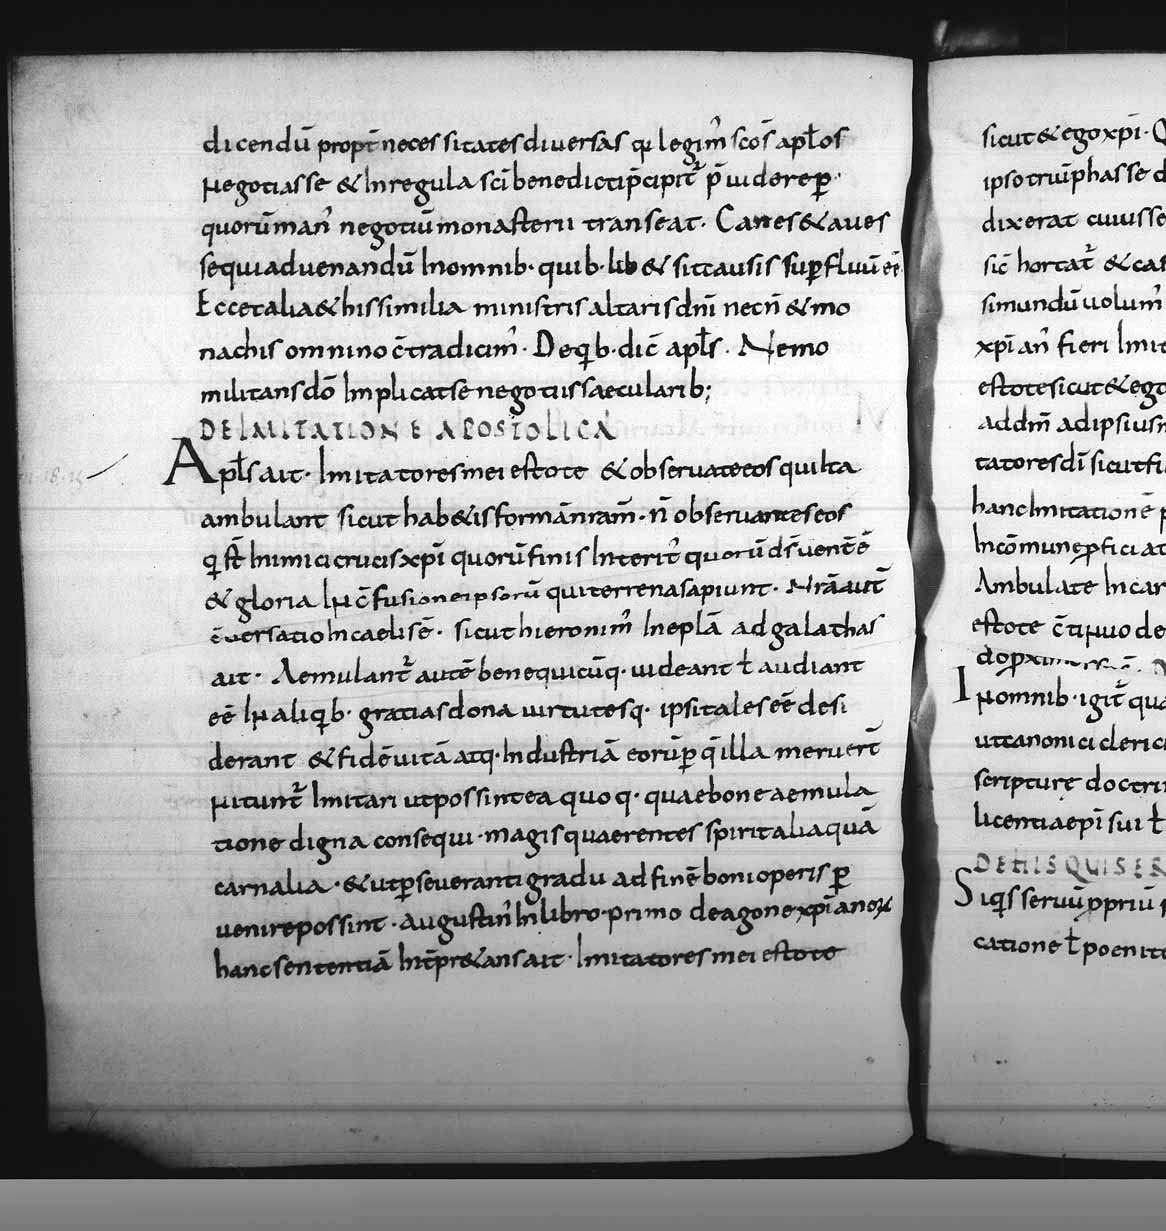 dicendū propt̄ necessitates diuersas qa legim̄ scōs apl̄os
negotiasse & In regula scī benedicti p̄cipit̄ p̄uidere p̱
quorū man' negotiū monasterii transeat. Canes & aues
sequi ad uenandū In omnib· quib· lib& sit causis sup̱fluū eē·
Ecce talia & his similia ministris altaris dn̄i necn̄ & mo
nachis omnino c̄tradicim̄· De qib· dic̄ apl̄s. Nemo
militans dō Implicat se negotiis saecularib;
DE IMITATIONE APOSTOLICA
Apl̄s ait· Imitatores mei estote & obseruate eos qui Ita
ambulant sicut hab&is formā nr̄am̄· n̄ obseruantes eos
qi st̄ Inimici crucis xp̄i quorū finis Interit' quorū ds̄ uent̄ ē
& gloria In c̄fusione ipsorū qui terrena sapiunt· Nr̄a aut̄
c̄uersatio In caelis ē· sicut hieronim' In eplā ad galathas
ait· Aemulant̄ autē bene qui cūq· uideant ł audiant
eē In aliqib· gratias dona uirtutesq· ipsi tales eē desi
derant & fidē uitā atq· Industriā eorū p̱ q̄ illa meruert̄
nitunt̄ Imitari ut possint ea quoq· quae bone aemula
tione digna consequi· magis quaerentes spiritalia quā
carnalia· & ut p̱seueranti gradu ad finē boni operis p̱
uenire possint· Augustin' In libro primo de agone xp̄ianoꝝ
hanc sententiā Int̄pr&ans ait· Imitatores mei estote
sicut & ego xp̄i· Q
ipso triūphasse d
dixerat cuiusse
sic̄ hortat̄ & cas
simundū uolum̄
xp̄ian' fieri Imit
estote sicut & ego
ad dm̄ adipsius
tatores dī sicut fi
hanc Imitationē p
In cōmune p̱ficiat
Ambulate In car
estote c̄tinuo de
Inomnib· igit̄ qua
ut canonici cleric
scripture doctri
licentia ep̄i sui ł
DE HIS QUI SER
Siqis seruū ppriū
catione ł poenite